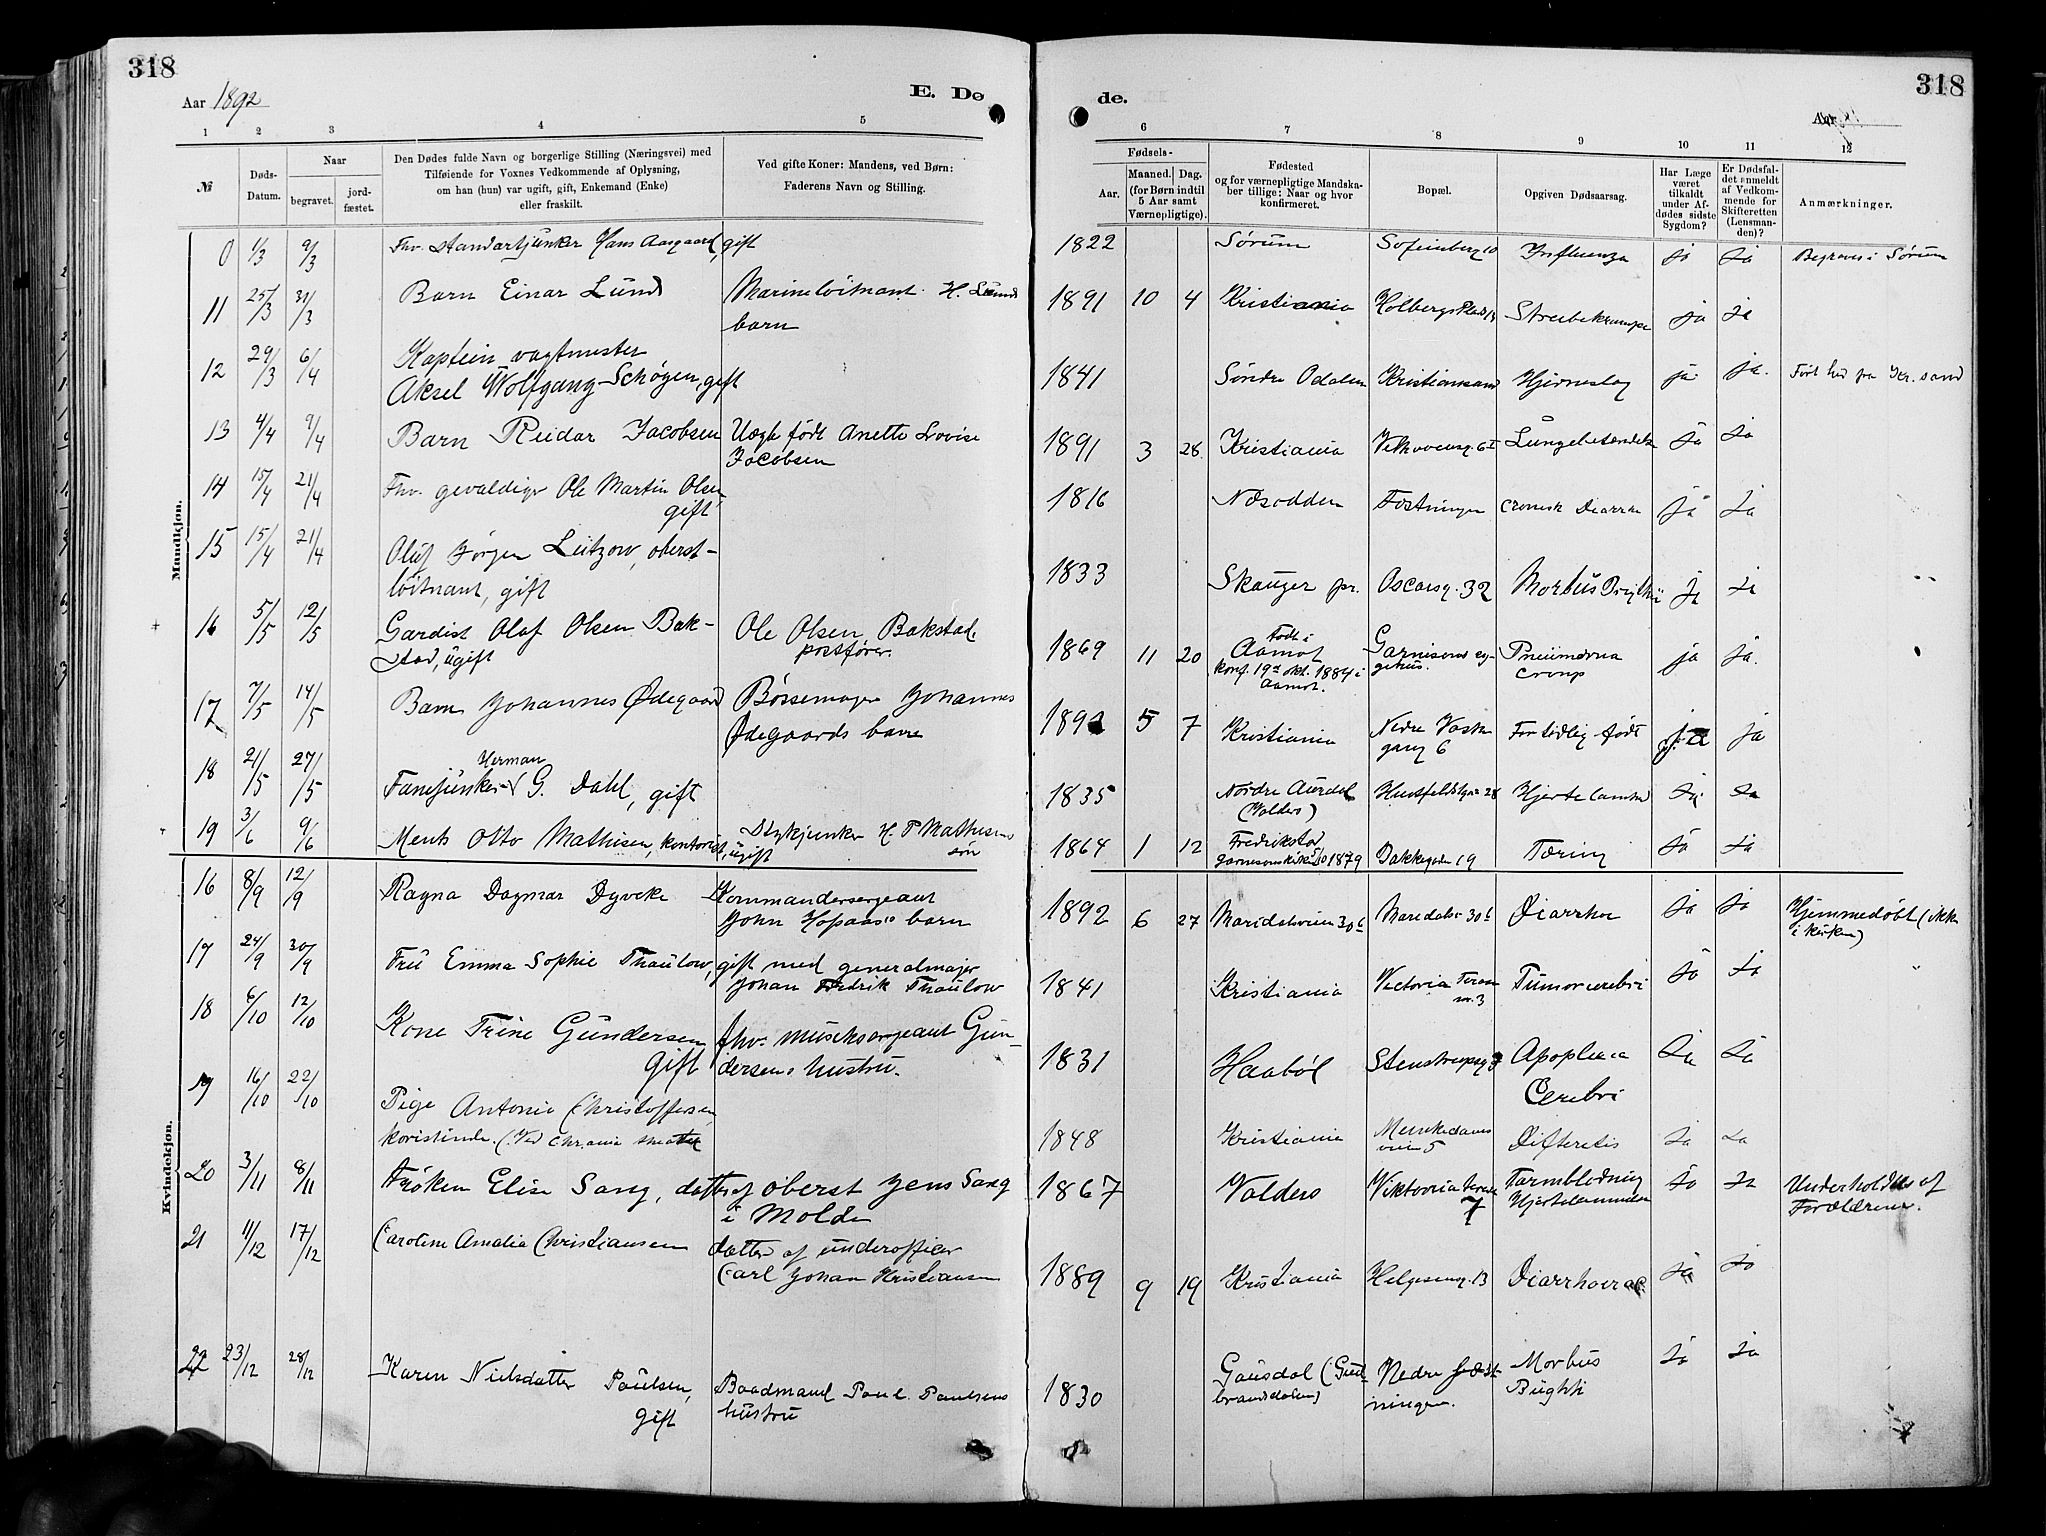 318
318
Aar 1892
E. Dø
de.
Aar
1 2 3 4 5
6 7 8 9 10 11 12
№
Døds-
Datum.
Naar
begravet.
jord-
fæstet.
Den Dødes fulde Navn og borgerlige Stilling (Næringsvei) med
Tilføiende for Voxnes Vedkommende af Oplysning,
om han (hun) var ugift, gift, Enkemand (Enke)
eller fraskilt.
Ved gifte Koner: Mandens, ved Børn:
Faderens Navn og Stilling.
Fødsels-
Aar.
Maaned. Dag.
(for Børn indtil
5 Aar samt
Værnepligtige).
Fødested
og for værnepligtige Mandska-
ber tillige: Naar og hvor
konfirmeret.
Bopæl.
Opgiven Dødsaarsag.
Har Læge
været
tilkaldt
under Af-
dødes sidste
Sygdom?
Er Dødsfal-
det anmeldt
af Vedkom-
mende for
Skifteretten
(Lensman-
den)?
Anmærkninger.
Mandkjøn.
0 1/3 9/3 Fhv. standartjunker Hans Aargaard, gift 1822 Sørum Sofienberg 10 Influenza ja ja Begraves i Sørum
11 25/3 31/3 Barn Einar Lund Marineløitnant H. Lunds
barn 1891 10 4 Kristiania Holbergs Plads Strubekrampe ja ja
12 29/3 6/4 Kaptein, vagtmester
Aksel Wolfgang Schøyen, gift 1841 Søndre Odalen Kristiansand Hjerneslag ja ja. Ført hid fra Kr. sand
13 4/4 9/4 Barn Reidar Jacobsen Uægte født Anette Lovise
Jacobsen 1891 3 28 Kristiania Lungebetændelse ja ja
14 15/4 21/4 Fhv. gevaldiger Ole Martin Olsen,
gift 1816 Næsodden Fæstningen cronisk Diarrhe ja ja
15 15/4 21/4 Oluf Jørgen Lützow, oberst-
løitnant, gift 1833 Skauger pr. Oscarsg. 32 Morbus Brigthii ja ja
16 5/5 12/5 Gardist Olaf Olsen Bak-
stad, ugift Ole Olsen Bakstad
postfører. 1869 11 20 Født i
Aamot
konf. 19de okt. 1884 i
Aamot. Garnisons sy-
gehus. Pneumonia
croup ja ja.
17 7/5 14/5 Barn Johannes Ødegaard Børsemager Johannes
Ødegaards barn 1892 5 7 Kristiania Nedre Vosk
gang 6 For tidlig født ja ja
18 21/5 27/5 Fanejunker Herman G. Dahl, gift 1835 Nordre Aurdal
(Valders) 28 ja ja
19 3/6 9/6 Mentz Otto Mathisen, kontorist, ugift Stykjunker H. P. Mathisens
søn 1864 1 12 Fredrikstad
garnisonskirke 5/10 1879 Bakkegaden 19 Tæring ja ja
Kvindekjøn.
16 8/9 12/9 Ragna Dagmar Dyveke Kommandersergeant
John Hopaas's barn 1892 6 27 Maridalsveien 30 c Maridalsv 30 c Diarrhoe ja ja Hjemmedøbt (ikke
i kirken)
17 24/9 30/9 Fru Emma Sophie Thaulow, gift med generalmajor
Johan Fredrik Thaulow 1841 Kristiania Victoria Teras-
se 3 Tumor cerebri ja ja
18 6/10 12/10 Kone Trine Gundersen
gift fhv. musiksergeant Gun-
dersens hustru. 1831 Haabøl Stenstrupsg 3 Apoplexia
Cerebri ja ja
19 16/10 22/10 Pige Antonie Christoffersen
koristinde. (Ved Chrania theater 1848 Kristiania Munkedams
veien 5 Difteritis ja ja
20 3/11 8/11 Frøken Elise Sang, datter af oberst Jens Sang
i Molde 1867 Valders Viktoria terasse
7 Tarmblødning
Hjertelammelse ja ja Underholdtes af
Forældrene.
21 11/12 17/12 Caroline Amalia Christiansen datter af underofficer
Carl Johan Kristiansen 1889 9 19 Kristiania Helgesensg. 13 Diarrhoea ac. ja ja
22 23/12 28/12 Karen Nielsdatter Paulsen,
gift Baadmand Paul Paulsens
hustru 1830 Gausdal (Gud-
brandsdalen) Nedre fæst-
ningen. Morbus
Bughti ja ja